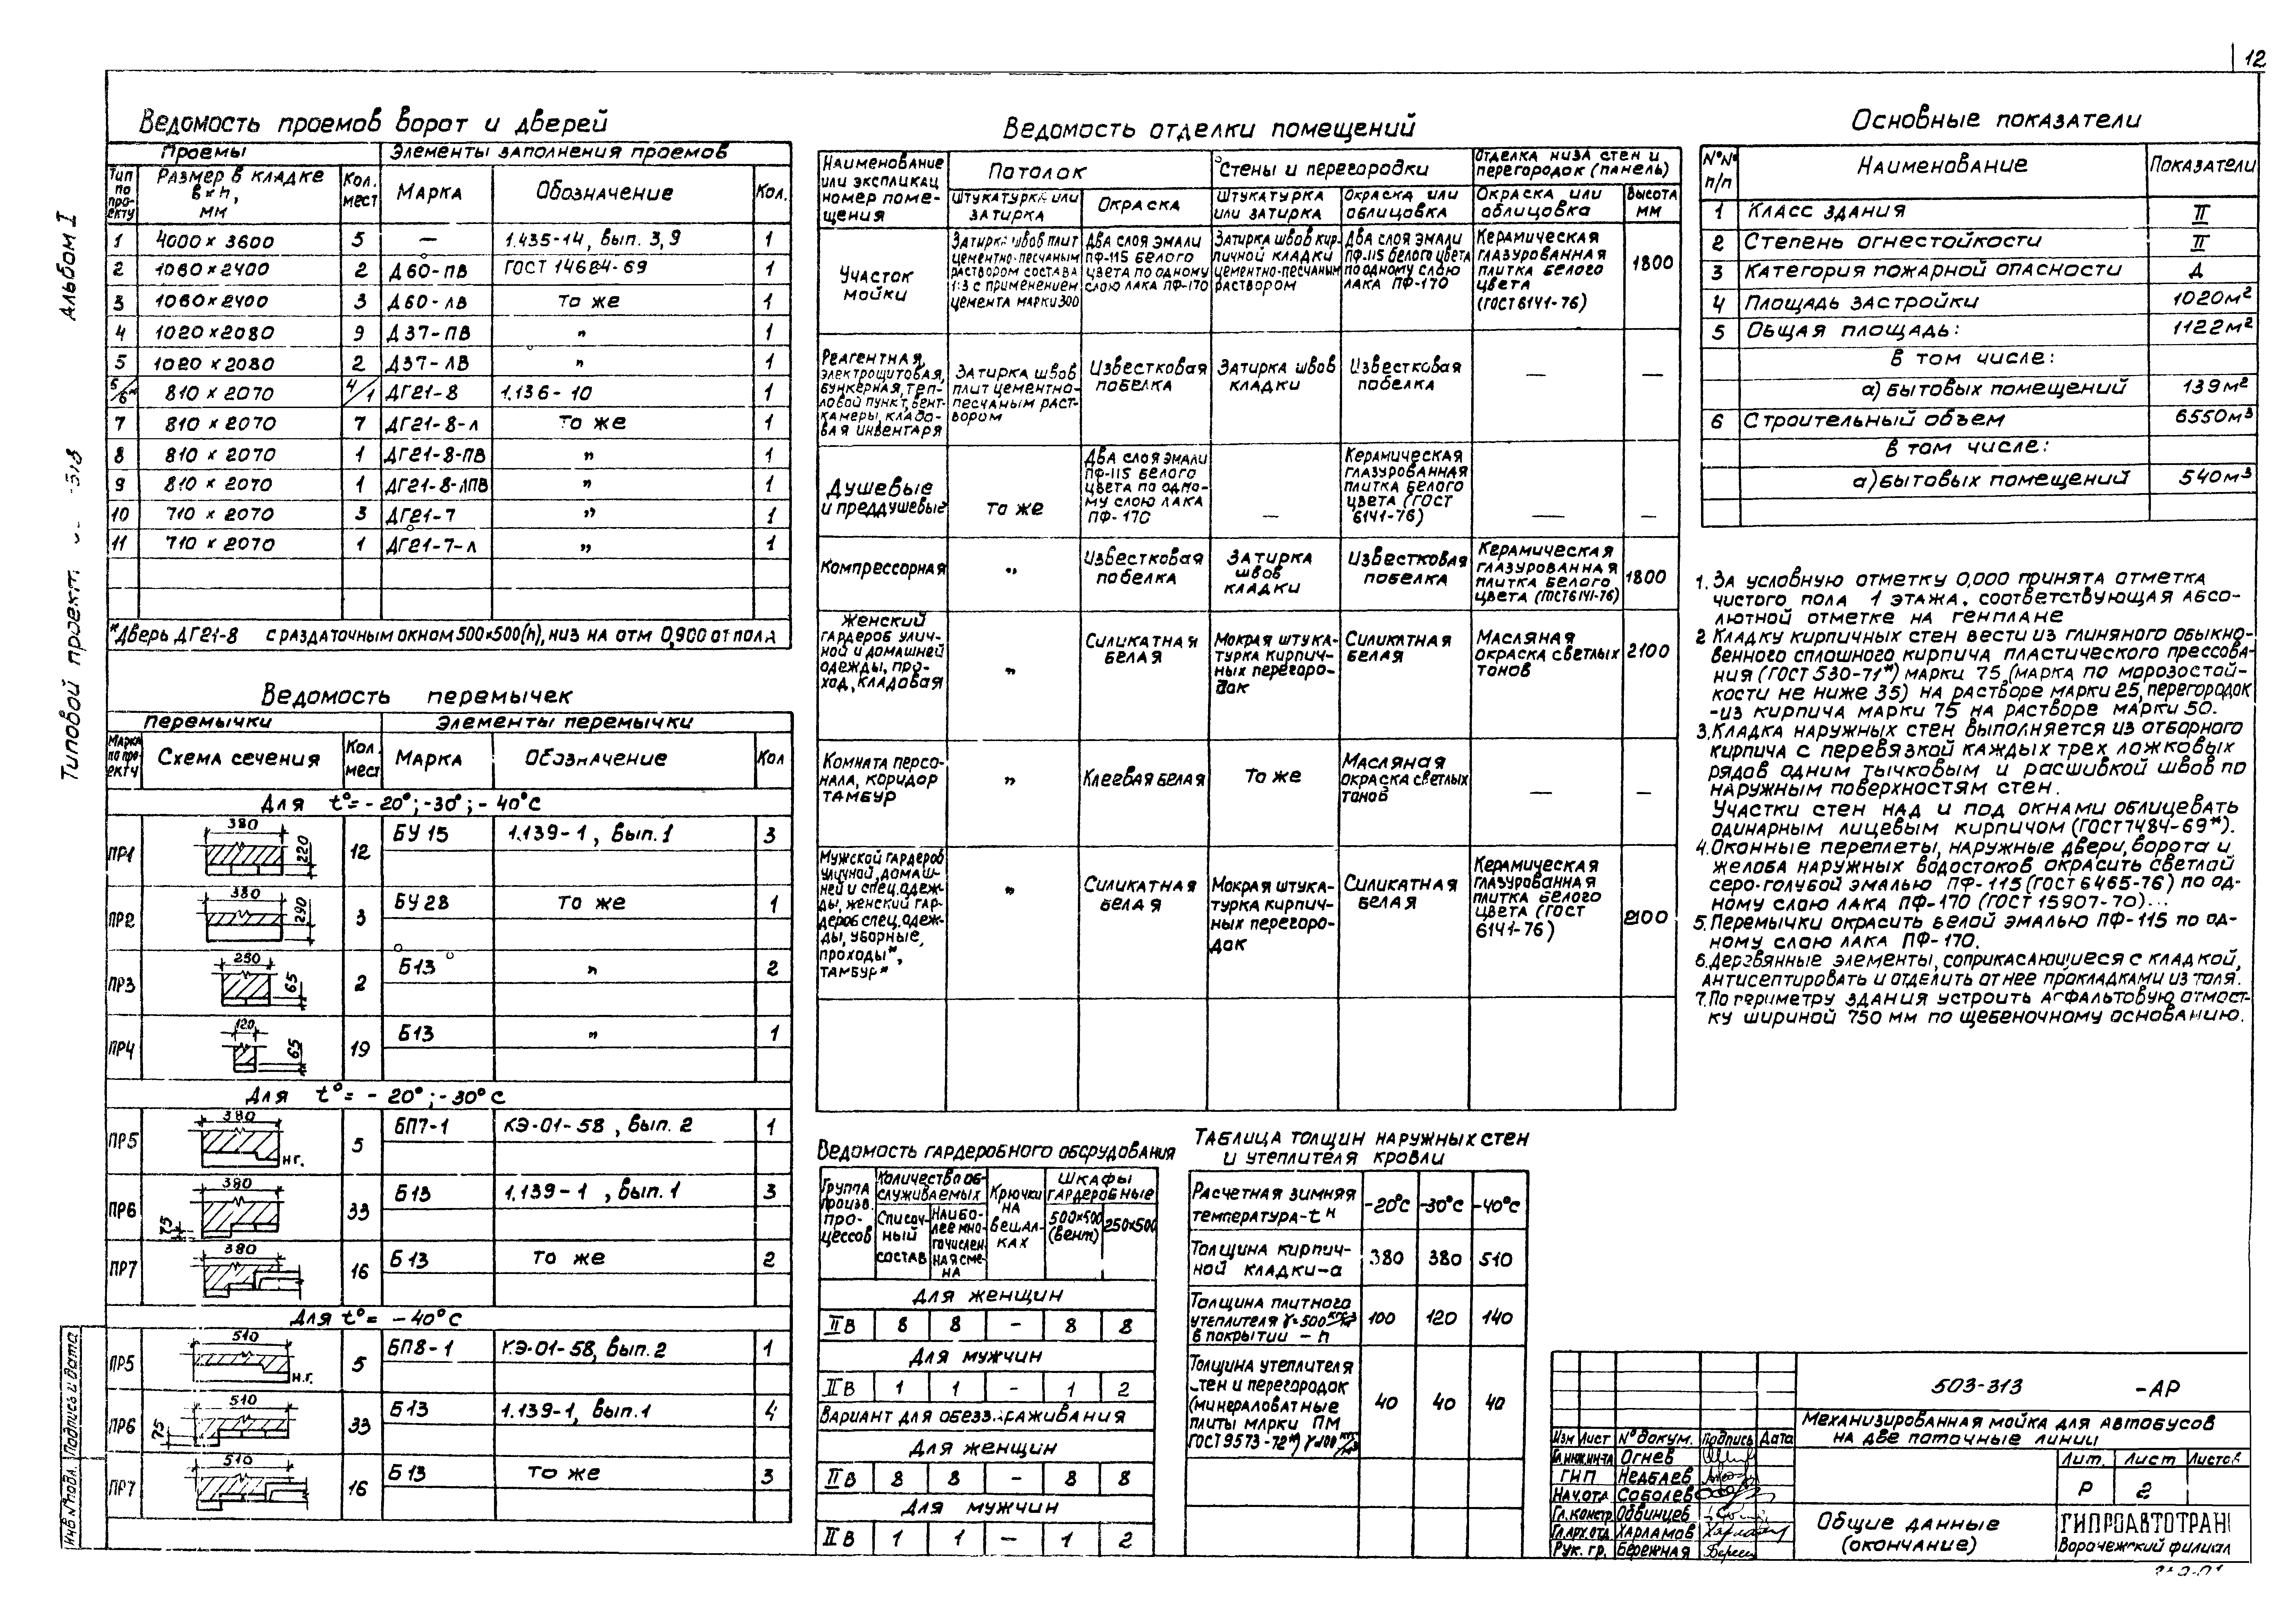 12
Альбом I
Типовой проект
Инв № подл. Подпись и дата
Ведомость проемов ворот и дверей
Проемы | Элементы заполнения проемов
Тип по про-екту | Размер в кладке в×h, мм | Кол. мест | Марка | Обозначение | Кол.
1 | 4000 × 3600 | 5 | — | 1.435-14, вып. 3,9 | 1
2 | 1060×2400 | 2 | Д60-ПВ | ГОСТ 14624-69 | 1
3 | 1060×2400 | 3 | Д60-ЛВ | То же | 1
4 | 1020×2080 | 9 | Д37-ПВ | " | 1
5 | 1020 × 2080 | 2 | Д37-ЛВ | " | 1
5/6* | 810 × 2070 | 4/1 | ДГ21-8 | 1.136-10 | 1
7 | 810 × 2070 | 7 | ДГ21-8-Л | То же | 1
8 | 810 × 2070 | 1 | ДГ21-8-ПВ | " | 1
9 | 810 × 2070 | 1 | ДГ21-8-ЛПВ | " | 1
10 | 710 × 2070 | 3 | ДГ21-7 | " | 1
11 | 710 × 2070 | 1 | ДГ21-7-Л | " | 1
*Дверь ДГ21-8 с раздаточным окном 500×500(h), низ на отм 0,900 от пола
Ведомость перемычек
Перемычки | Элементы перемычки
Марка по про-екту | Схема сечения | Кол. мест | Марка | Обозначение | Кол
Для t°= -20°; -30°; -40°C
ПР1 | 380 220 | 12 | БУ 15 | 1.139-1, Вып. 1 | 3
ПР2 | 380 290 | 3 | БУ 28 | То же | 1
ПР3 | 250 65 | 2 | Б13 | " | 2
ПР4 | 120 65 | 19 | Б13 | " | 1
Для t°= -20°; -30°C
ПР5 | 380 н.г. | 5 | БП7-1 | КЭ-01-58, Вып. 2 | 1
ПР6 | 380 75 | 33 | Б13 | 1.139-1, Вып. 1 | 3
ПР7 | 380 | 16 | Б 13 | То же | 2
Для t°= -40°C
ПР5 | 510 н.г. | 5 | БП8-1 | КЭ-01-58, Вып. 2 | 1
ПР6 | 510 75 | 33 | Б13 | 1.139-1, Вып. 1 | 4
ПР7 | 510 | 16 | Б13 | То же | 3
Ведомость отделки помещений
Наименование или экспликац номер поме-щения | Потолок | Стены и перегородки | Отделка низа стен и перегородок (панель)
Штукатурка или затирка | Окраска | Штукатурка или затирка | Окраска или облицовка | Окраска или облицовка | Высота мм
Участок мойки | Затирка швов плит цементно-песчаным раствором состава 1:3 с применением цемента марки 300 | Два слоя эмали ПФ-115 белого цвета по одному слою лака ПФ-170 | Затирка швов кир-пичной кладки цементно-песчаным раствором | Два слоя эмали ПФ-115 белого цвета по одному слою лака ПФ-170 | Керамическая глазурованная плитка белого цвета (ГОСТ 6141-76) | 1800
Реагентная, электрощитовая, бункерная, теп-ловой пункт, вент-камеры, кладо-вая инвентаря | Затирка швов плит цементно-песчаным раст-вором | Известковая побелка | Затирка швов кладки | Известковая побелка | — | —
Душевые и преддушевые | То же | Два слоя эмали ПФ-115 белого цвета по одно-му слою лака ПФ-170 | — | Керамическая глазурованная плитка белого цвета (ГОСТ 6141-76) | — | —
Компрессорная | " | Известковая побелка | Затирка швов кладки | Известковая побелка | Керамическая глазурованная плитка белого цвета (ГОСТ 6141-76) | 1800
Женский гардероб улич-ной и домашней одежды, про-ход, кладовая | " | Силикатная белая | Мокрая штука-турка кирпич-ных перегоро-док | Силикатная белая | Масляная окраска светлых тонов | 2100
Комната персо-нала, коридор тамбур | " | Клеевая белая | То же | Масляная окраска светлых тонов | — | —
Мужской гардероб уличной, домаш-ней и спец.одеж-ды, женский гар-дероб спец.одеж-ды, уборные, проходы*, тамбур* | " | Силикатная белая | Мокрая штука-турка кирпич-ных перегоро-док | Силикатная белая | Керамическая глазурованная плитка белого цвета (ГОСТ 6141-76) | 2100
Ведомость гардеробного оборудования
Группа произв. про-цессов | Количество об-служиваемых | Крючки на вешал-ках | Шкафы гардеробные
Списоч-ный состав | Наибо-лее мно-гочислен-ная сме-на | 500×500 (вент) | 250×500
Для женщин
IIв | 8 | 8 | - | 8 | 8
Для мужчин
IIв | 1 | 1 | - | 1 | 2
Вариант для обеззараживания
Для женщин
IIв | 8 | 8 | - | 8 | 8
Для мужчин
IIв | 1 | 1 | — | 1 | 2
Таблица толщин наружных стен
и утеплителя кровли
Расчетная зимняя температура-tн | -20°C | -30°C | -40°C
Толщина кирпич-ной кладки-а | 380 | 380 | 510
Толщина плитного утеплителя γ=500 кгс/м3 в покрытии - h | 100 | 120 | 140
Толщина утеплителя стен и перегородок (минераловатные плиты марки ПМ ГОСТ 9573-72*) γ=100 кгс/м3 | 40 | 40 | 40
Основные показатели
№№ п/п | Наименование | Показатели
1 | Класс здания | II
2 | Степень огнестойкости | II
3 | Категория пожарной опасности | Д
4 | Площадь застройки | 1020м2
5 | Общая площадь: | 1122м2
в том числе:
а) бытовых помещений | 139м2
6 | Строительный объем | 6550м3
в том числе:
а) бытовых помещений | 540м3
1. За условную отметку 0,000 принята отметка
чистого пола 1 этажа, соответствующая абсо-
лютной отметке на генплане
2 Кладку кирпичных стен вести из глиняного обыкно-
венного сплошного кирпича пластического прессова-
ния (ГОСТ 530-71*) марки 75, (марка по морозостой-
кости не ниже 35) на растворе марки 25, перегородок
-из кирпича марки 75 на растворе марки 50.
3. Кладка наружных стен выполняется из отборного
кирпича с перевязкой каждых трех ложковых
рядов одним тычковым и расшивкой швов по
наружным поверхностям стен.
Участки стен над и под окнами облицевать
одинарным лицевым кирпичом (ГОСТ 7484-69*).
4. Оконные переплеты, наружные двери, ворота и
желоба наружных водостоков окрасить светлой
серо-голубой эмалью ПФ-115 (ГОСТ 6465-76) по од-
ному слою лака ПФ-170 (ГОСТ 15907-70)...
5. Перемычки окрасить белой эмалью ПФ-115 по од-
ному слою лака ПФ-170.
6. Деревянные элементы, соприкасающиеся с кладкой,
антисептировать и отделить от нее прокладками из толя.
7. По периметру здания устроить асфальтовую отмост-
ку шириной 750 мм по щебеночному основанию.
503-313 -АР
Механизированная мойка для автобусов
на две поточные линии
Изм Лист № докум. Подпись Дата
Гл.инж.ин-та Огнев
ГИП Недблев
Нач.отд Соболев
Гл.констр. Одвинцев
Гл.арх.отд. Харламов
Рук. гр. Бережная
Лит. Лист Листов
Р 2
Общие данные
(окончание)
ГИПРОАВТОТРАН
Воронежский филиал